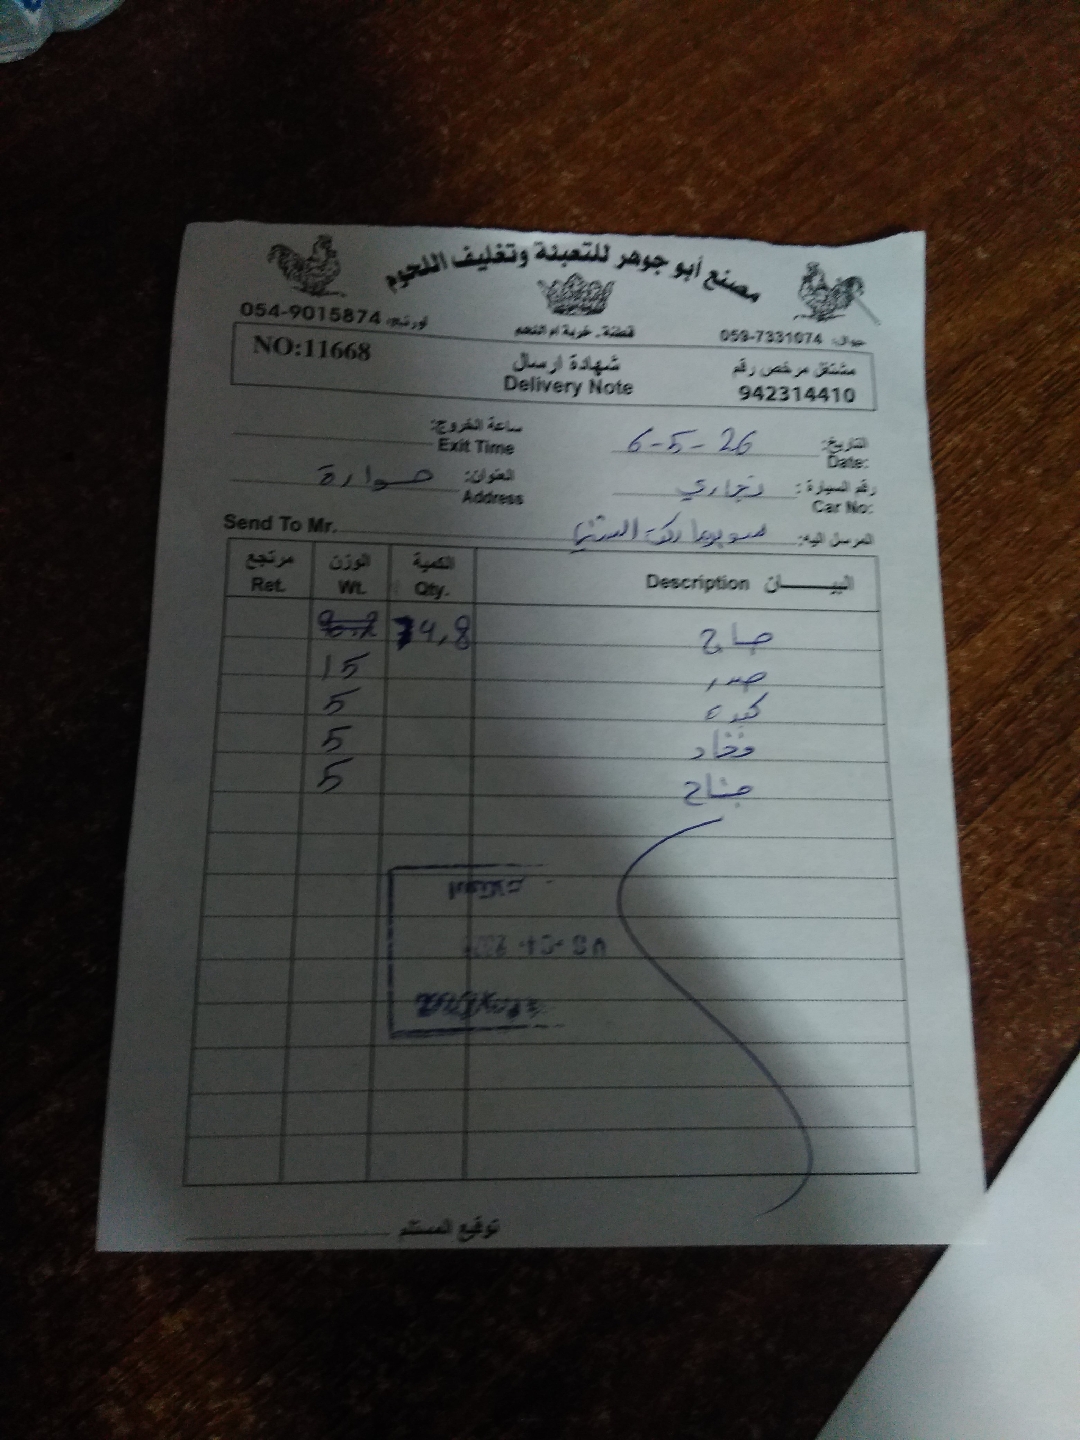 مصنع أبو جوهر للتعبئة وتغليف اللحوم
جوال: 059-7331074 قطنة - خربة ام اللحم اورنج: 054-9015874
مشتغل مرخص رقم شهادة ارسال NO:11668
942314410 Delivery Note
التاريخ: 6-5-26 ساعة الخروج:
Date: Exit Time
رقم السيارة: تجاري العنوان: حوارة
Car No: Address
المرسل اليه: سوبر Send To Mr.
البيـــــــان Description الكمية Qty. الوزن Wt. مرتجع Ret.
جاج 74,8
صدر 15
كبدة 5
فخاد 5
جناح 5
توقيع المستلم